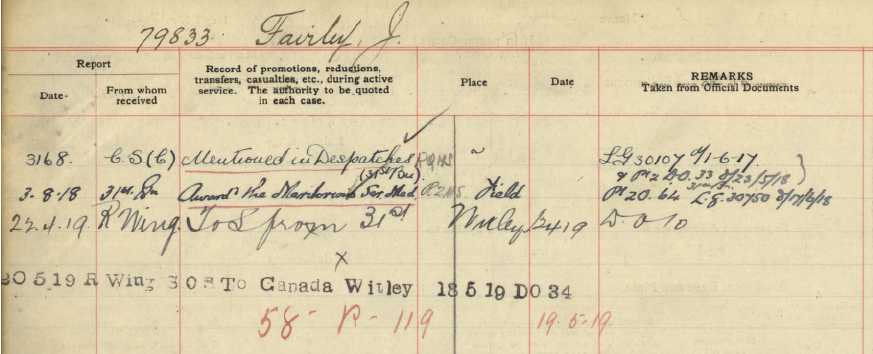 79833 Fairley, J.
Report
Record of promotions, reductions, transfers, casualties, etc., during active service. The authority to be quoted in each case.
Place
Date
REMARKS
Taken from Official Documents
Date.
From whom received
3168. C.S(C) Mentioned in Despatches " LG 30107 d/1-6-17.
(31st Bn) & Pt 2 D.O. 33 d/23/5/18
3-8-18 31st Bn Award'd the Meritorious Ser. Med. Field Pt 2 O. 64 L.G. 30750 d/17/6/18
22.4.19 R Wing. To S from 31st Witley D.O 10
x
30 5 19 R Wing S O S To Canada Witley 18 5 19 DO 34
58 - R - 119 19-5-19